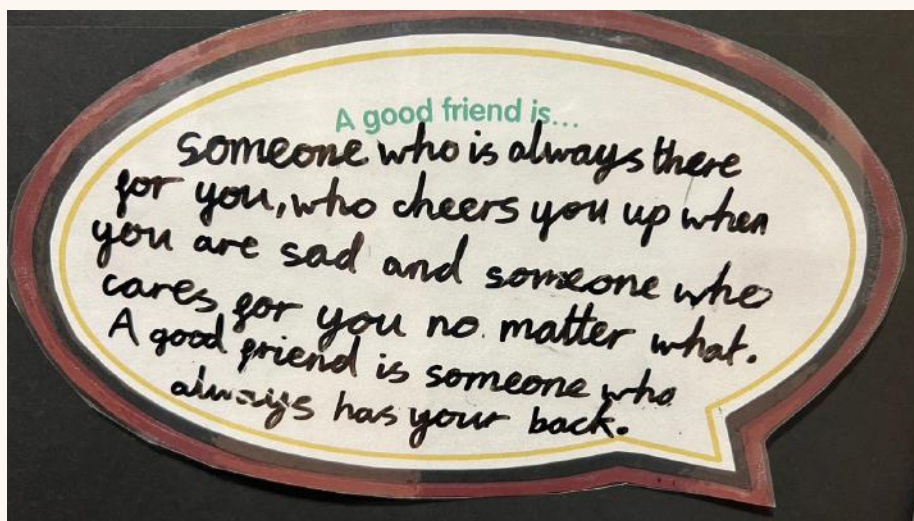 A good friend is...
someone who is always there
for you, who cheers you up when
you are sad and someone who
cares for you no matter what.
A good friend is someone who
always has your back.